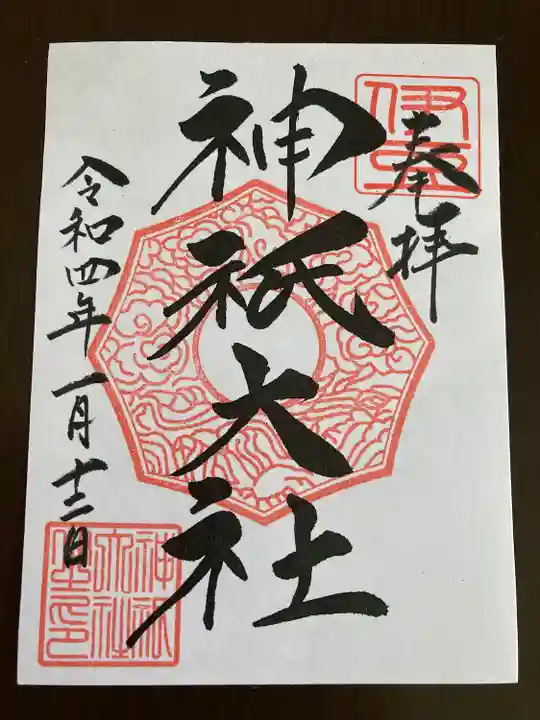 伊豆
奉拝
神祇大社
令和四年一月十二日
神祇
大社